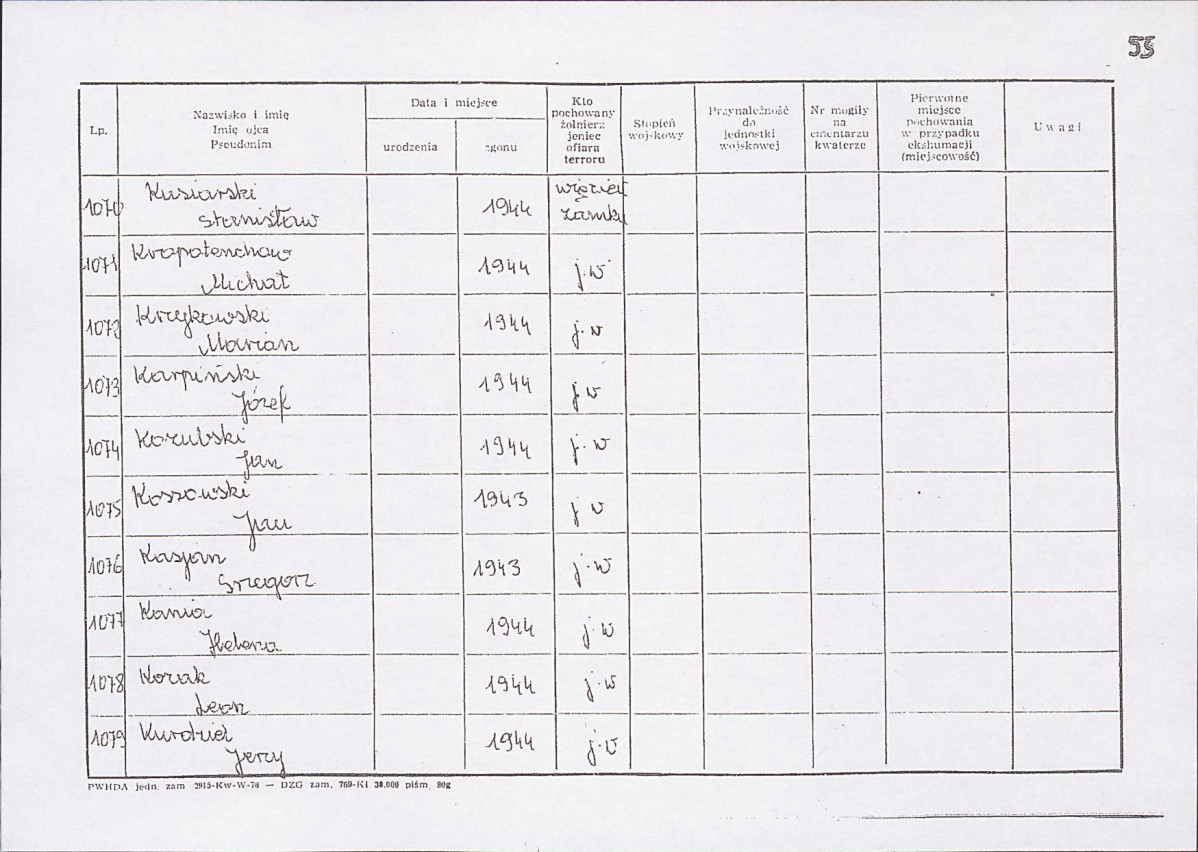 55
Lp.
Nazwisko i imię
Imię ojca
Pseudonim
Data i miejsce
urodzenia
zgonu
Kto
pochowany
żołnierz
jeniec
ofiara
terroru
Stopień
wojskowy
Przynależność
do
jednostki
wojskowej
Nr mogiły
na
cmentarzu
kwaterze
Pierwotne
miejsce
pochowania
w przypadku
ekshumacji
(miejscowość)
Uwagi
1070 Kusiarski 1944 więzień
Stanisław zamku
1071 1944 j.w
Michał
1072 Krzejkowski 1944 j.w
Marian
1073 Karpiński 1944 j w
Józef
1074 Kozubski 1944 j.w
Jan
1075 Koszowski 1943 j w
Jan
1076 Kasjan 1943 j.w
Grzegorz
1077 Kania 1944 j.w
Helena
1078 1944 j.w
Leon
1079 Kurdziel 1944 j.w
Jerzy
PWHDA jedn. zam 2915-Kw-W-76 — DZG zam. 769-Kl 30.000 piśm. 80g